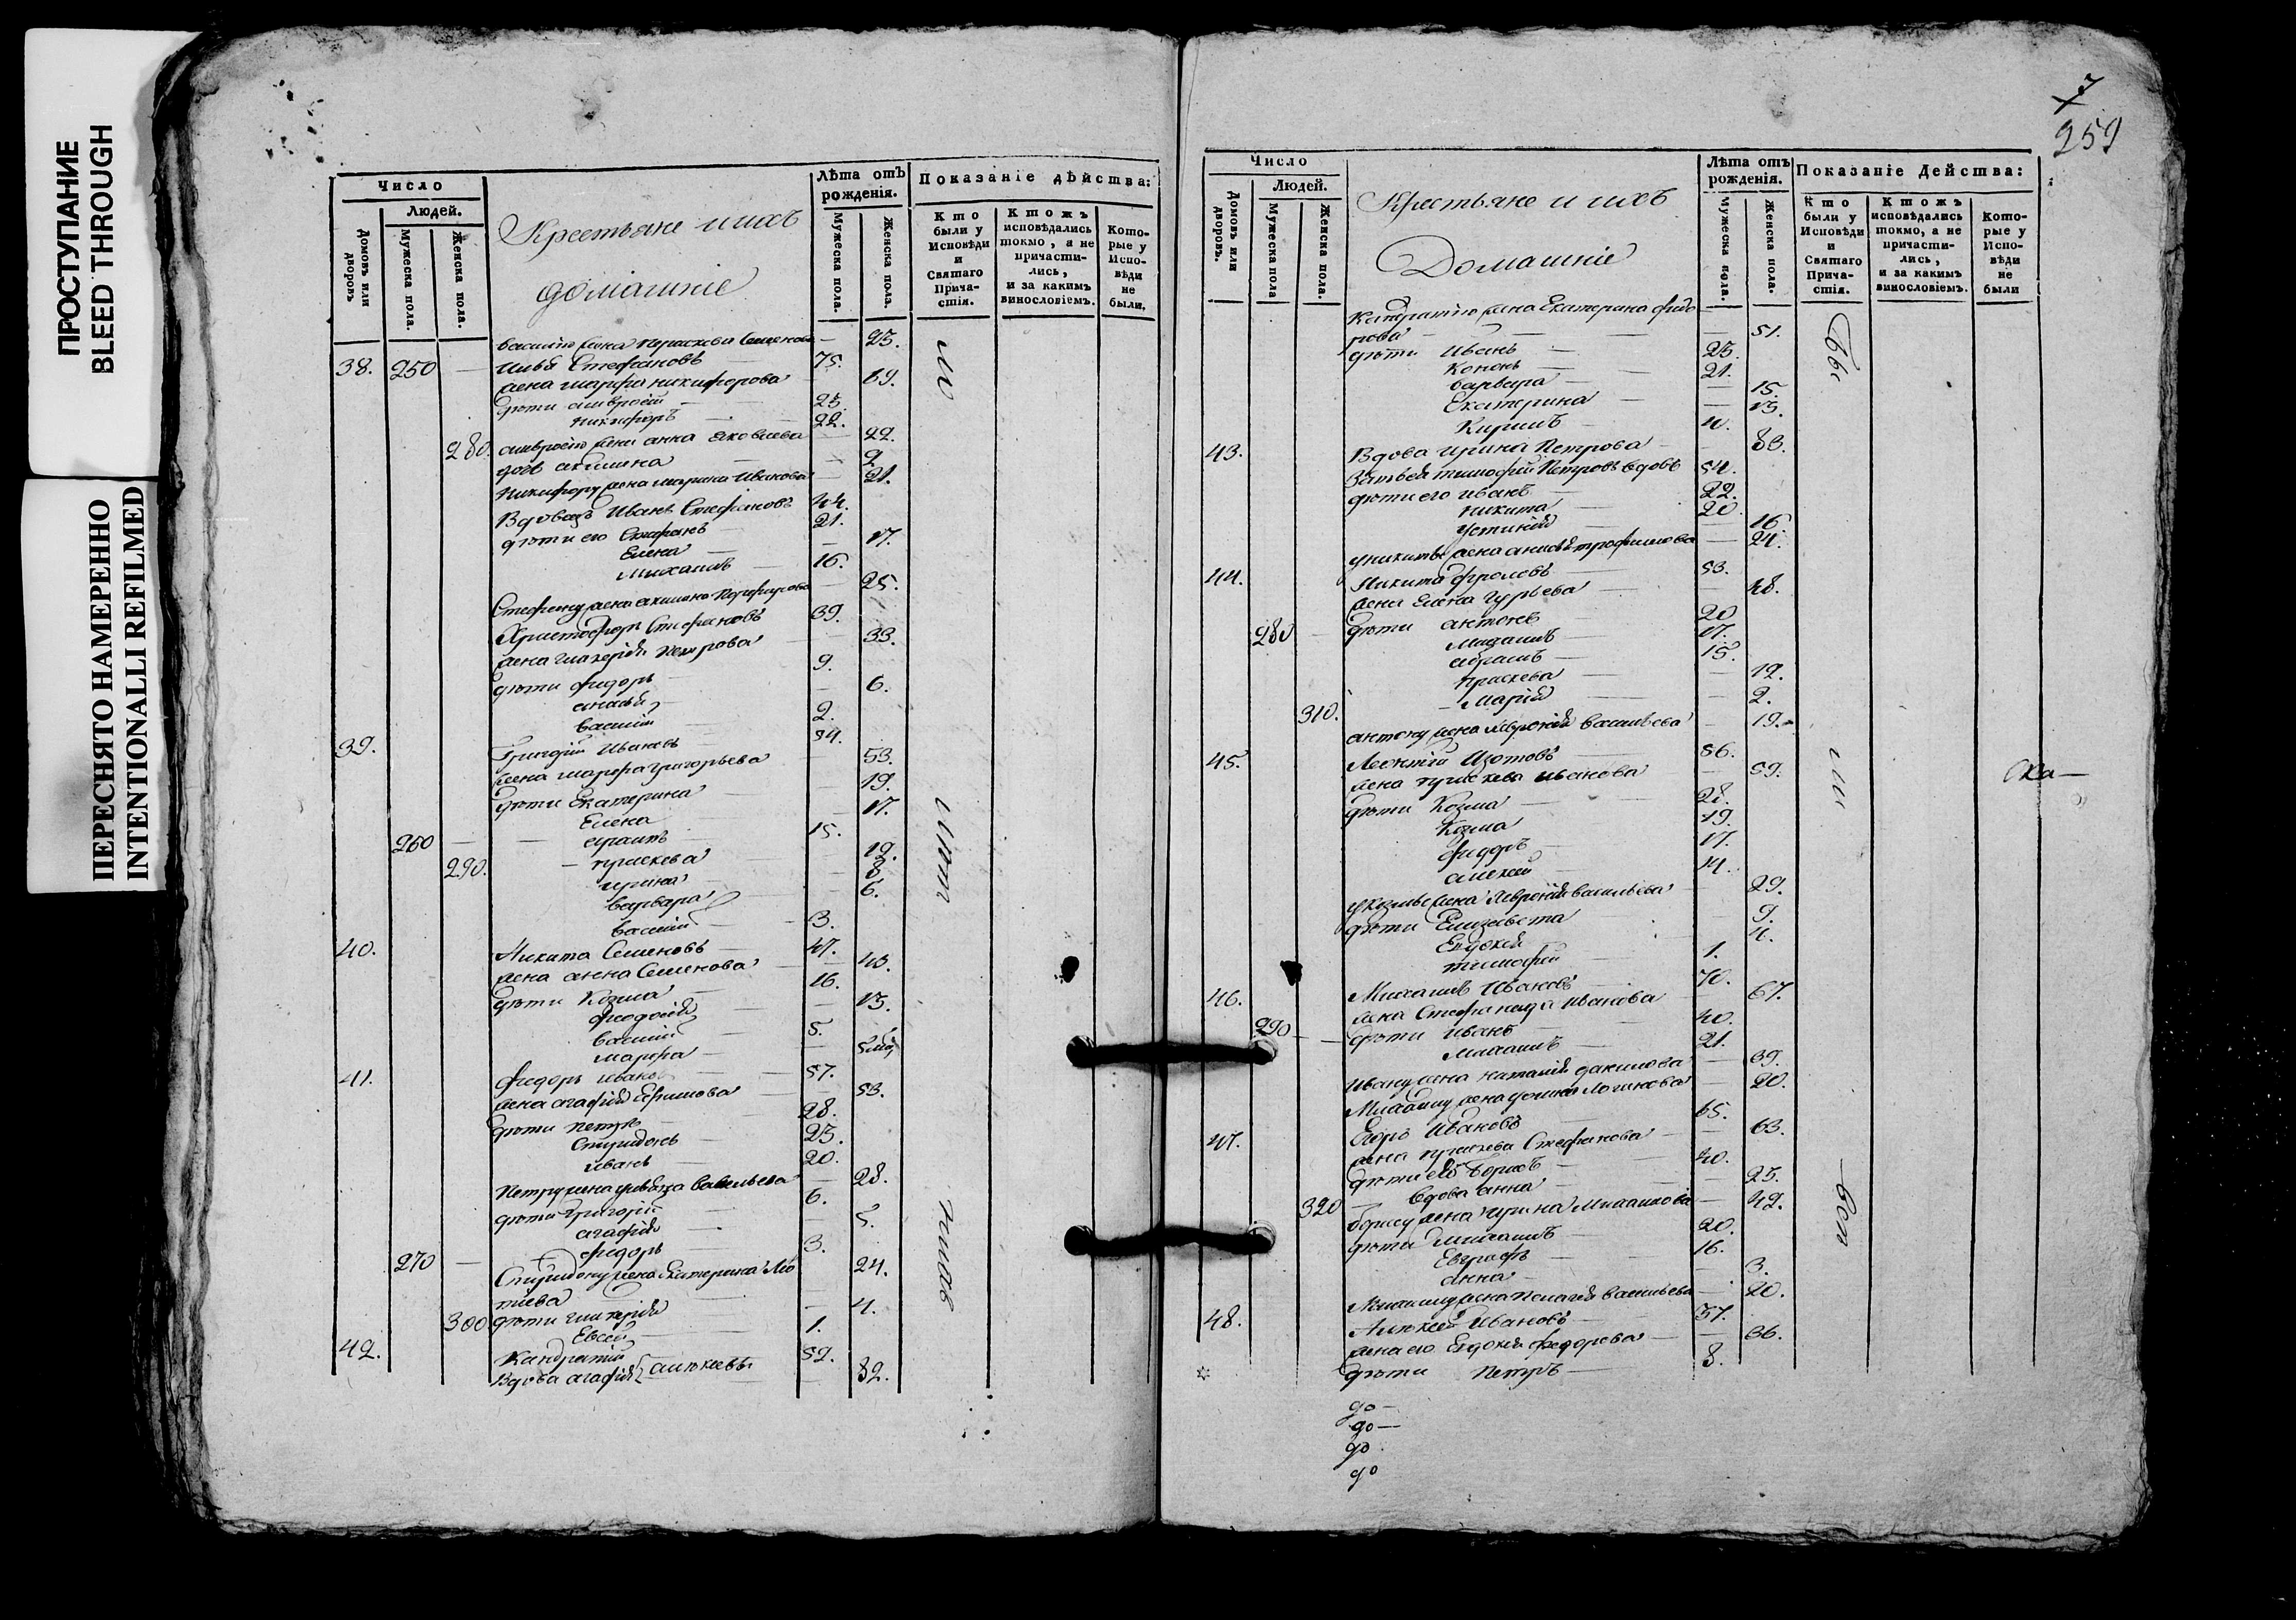 ПРОСТУПАНИЕ
BLEED THROUGH
ПЕРЕСНЯТО НАМЕРЕННО
INTENTIONALLI REFILMED
Число
Людей.
Домовъ или дворовъ
Мужеска пола.
Женска пола.
Крестьяне и ихъ
домашніе
Лѣта отъ рожденія.
Мужеска пола.
Женска пола.
Показаніе дѣйства:
Кто были у Исповѣди и Святаго Прича-стія.
Ктожъ исповѣдались токмо, а не причасти-лись, и за какимъ винословіемъ.
Кото-рые у Испо-вѣди не были.
василію жена праскева Семенова — 25.
38. 250 — Илья Стефановъ 75.
жена марфа никифорова 69.
дѣти амвросій 25.
никифоръ 22.
280. амвросію жена анна яковлева 22.
дочь акилина 2.
никифору жена марина Иванова 21.
Вдовецъ Иванъ Стефановъ 44.
дѣти его Стефанъ 21.
Елена 17.
Михаилъ 16.
Стефану жена акилина Порфирова 25.
Христофоръ Стефановъ 39.
жена гликерія Петрова 33.
дѣти федоръ 9.
6.
василій 2.
39. Григорій Ивановъ 54.
жена марфа григорьева 53.
дѣти Екатерина 19.
Елена 17.
260 — 15.
290. — праскева 12.
ирина 8.
варвара 6.
василій 3.
40. Никита Семеновъ 47.
жена анна Семенова 43.
дѣти Козма 16.
Феодосія 13.
василій 5.
марфа
41. Федоръ иванов 57.
жена агафія Ефимова 53.
дѣти петръ 28.
Спиридонъ 23.
иванъ 20.
Петру жена Савельева 28.
дѣти григорій 6.
агафія 5.
федоръ 3.
270 — Спиридону жена Екатерина Ле
тіева 24.
300. дѣти гликерія 4.
Евсей 1.
42. Кандратій 52.
Вдова агафія алексеевы 82.
259
Число
Людей.
Домовъ или дворовъ.
Мужеска пола
Женска пола.
Крестьяне и ихъ
Домашніе
Лѣта отъ рожденія.
Мужеска пола.
Женска пола.
Показаніе Действа:
Кто были у Исповѣди и Святаго Прича-стія.
Ктожъ исповѣдались токмо, а не причасти-лись, и за какимъ винословіемъ.
Кото-рые у Испо-вѣди не были
Кандратію жена Екатерина фидо
рова 51.
дѣти Иванъ 23.
Кононъ 21.
варвара 15.
Екатерина 13.
Кирилъ 4.
43. Вдова Ирина Петрова 83.
Зять ея тимофей Петровъ вдовъ 54.
дѣти его иванъ 22.
никита 20.
Устинія 16.
у никиты жена анисья трофимова 24.
44. Никита Фроловъ 53.
жена Елена Гурьева 48.
280 — дѣти антонъ 20
Михаилъ 17.
абрамъ 15.
праскева 12.
Марія 2.
310. антону жена Февронія васильева 19.
45. Леонтій Изотовъ 56.
жена праскева иванова 59.
дѣти Козма 28.
Козма 19.
федоръ 17.
алексей 14.
у козмы жена Февронія васильева 29.
дѣти Елизавета 9.
Евдокія 4.
тимофей 1.
46. Михаилъ Ивановъ 70.
жена Стефанида Иванова 67.
290 — дѣти иванъ 40.
Михаилъ 21.
ивану жена наталія данилова 39.
Михаилу жена Логинова 20.
47. Егоръ Ивановъ 65.
жена праскева Стефанова 63.
дѣти его Борисъ 40.
вдова анна 25.
320 борису жена ирина Михаилова 42.
дѣти михаилъ 20.
Евграфъ 16.
анна 3.
Михаилу жена Пелагея васильева 20.
48. Алексей Ивановъ 37.
жена его Евдокія федорова 36.
дѣти Петръ 8.
до —
до —
до
до